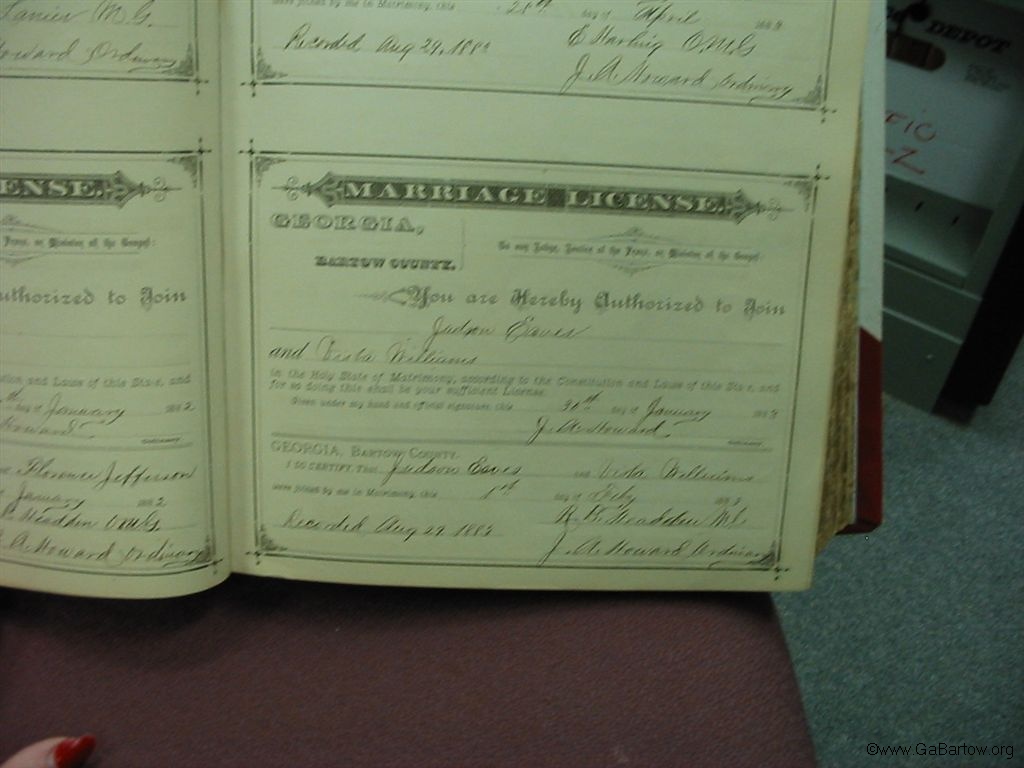 Lanier M. G.
Howard Ordinary
ENSE.
Peace, or Minister of the Gospel:
uthorized to Join
tion and Laws of this State, and
day of January 1882
Howard
Ordinary
Florence Jefferson
January 1882
Headden OMG
J. A. Howard Ordinary
were joined by me in Matrimony, this 28th day of April 188
Recorded Aug 29, 1883
E Harling O.M.G
J. A. Howard Ordinary
MARRIAGE LICENSE.
GEORGIA,
BARTOW COUNTY.
To any Judge, Justice of the Peace, or Minister of the Gospel:
You are Hereby Authorized to Join
Judson Eaves
and Vieba Williams
in the Holy State of Matrimony, according to the Constitution and Laws of this State, and
for so doing this shall be your sufficient License.
Given under my hand and official signature, this 30th day of January 188
J. A. Howard
Ordinary
GEORGIA, Bartow County.
I TO CERTIFY, That Judson Eaves and Veda Williams
were joined by me in Matrimony, this 1st day of Feby 188
R. B. Headden MG
Recorded Aug 29, 1883
J. A. Howard Ordinary
DEPOT
FIC
-Z
©www.GaBartow.org